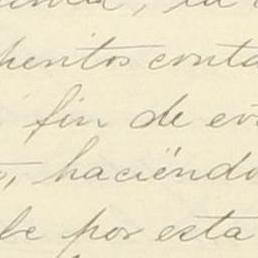 mentos conta
fin de evi
, haciendo
be por esta